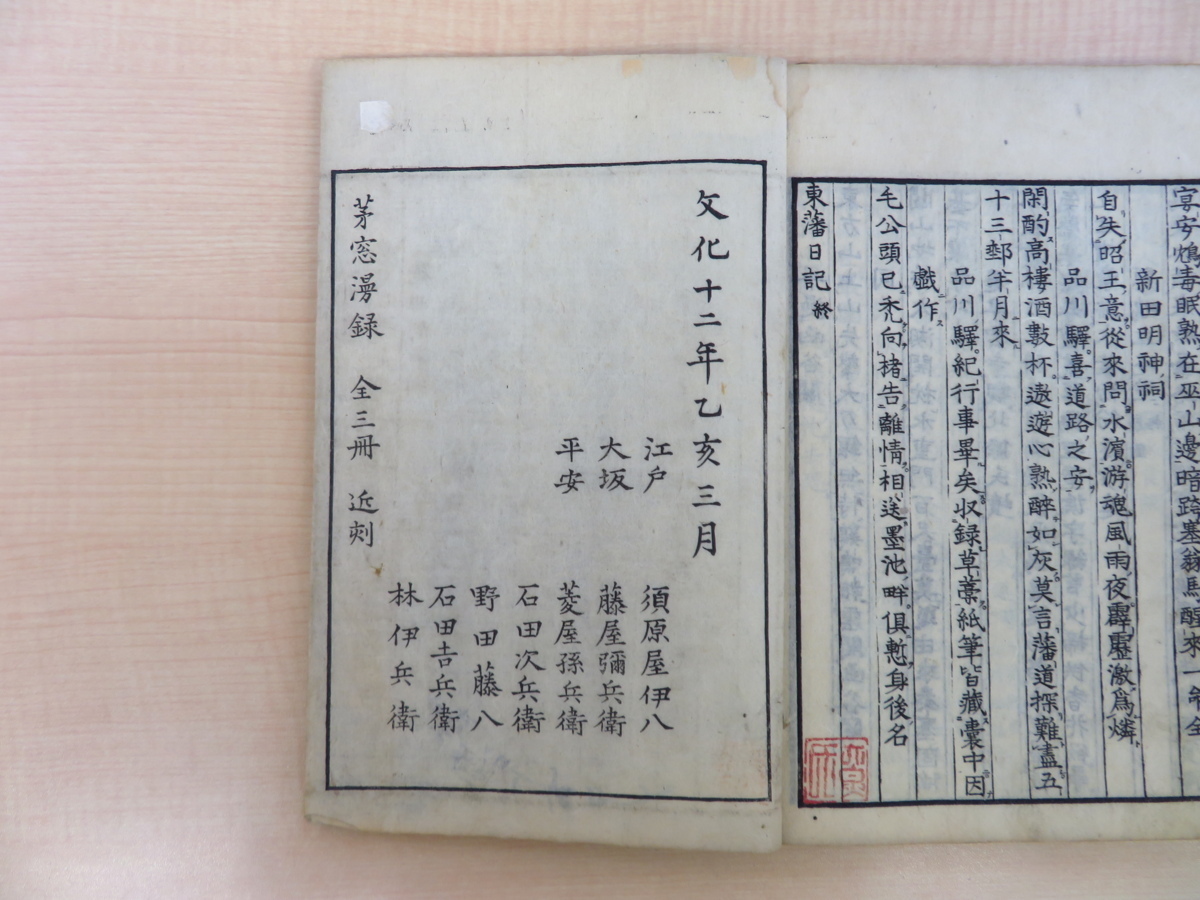 宴安鴆毒眠熟在巫山邊暗跨塞翁馬醒來一
新田明神祠
自失昭王意從來問水濱游魂風雨夜霹靂激爲燐
品川驛喜道路之安
閑酌高樓酒數杯遨遊心熟醉如灰莫言藩道探難盡五
十三郵半月來
品川驛紀行事畢矣収録草藁紙筆皆藏囊中因
戯作
毛公頭已禿向楮告離情相送墨池畔俱慙身後名
東藩日記 終
文化十二年乙亥三月
江戸 須原屋伊八
大坂 藤屋彌兵衛
平安 菱屋孫兵衛
石田次兵衛
野田藤八
石田吉兵衛
林伊兵衛
茅窓漫録 全三冊 近刻